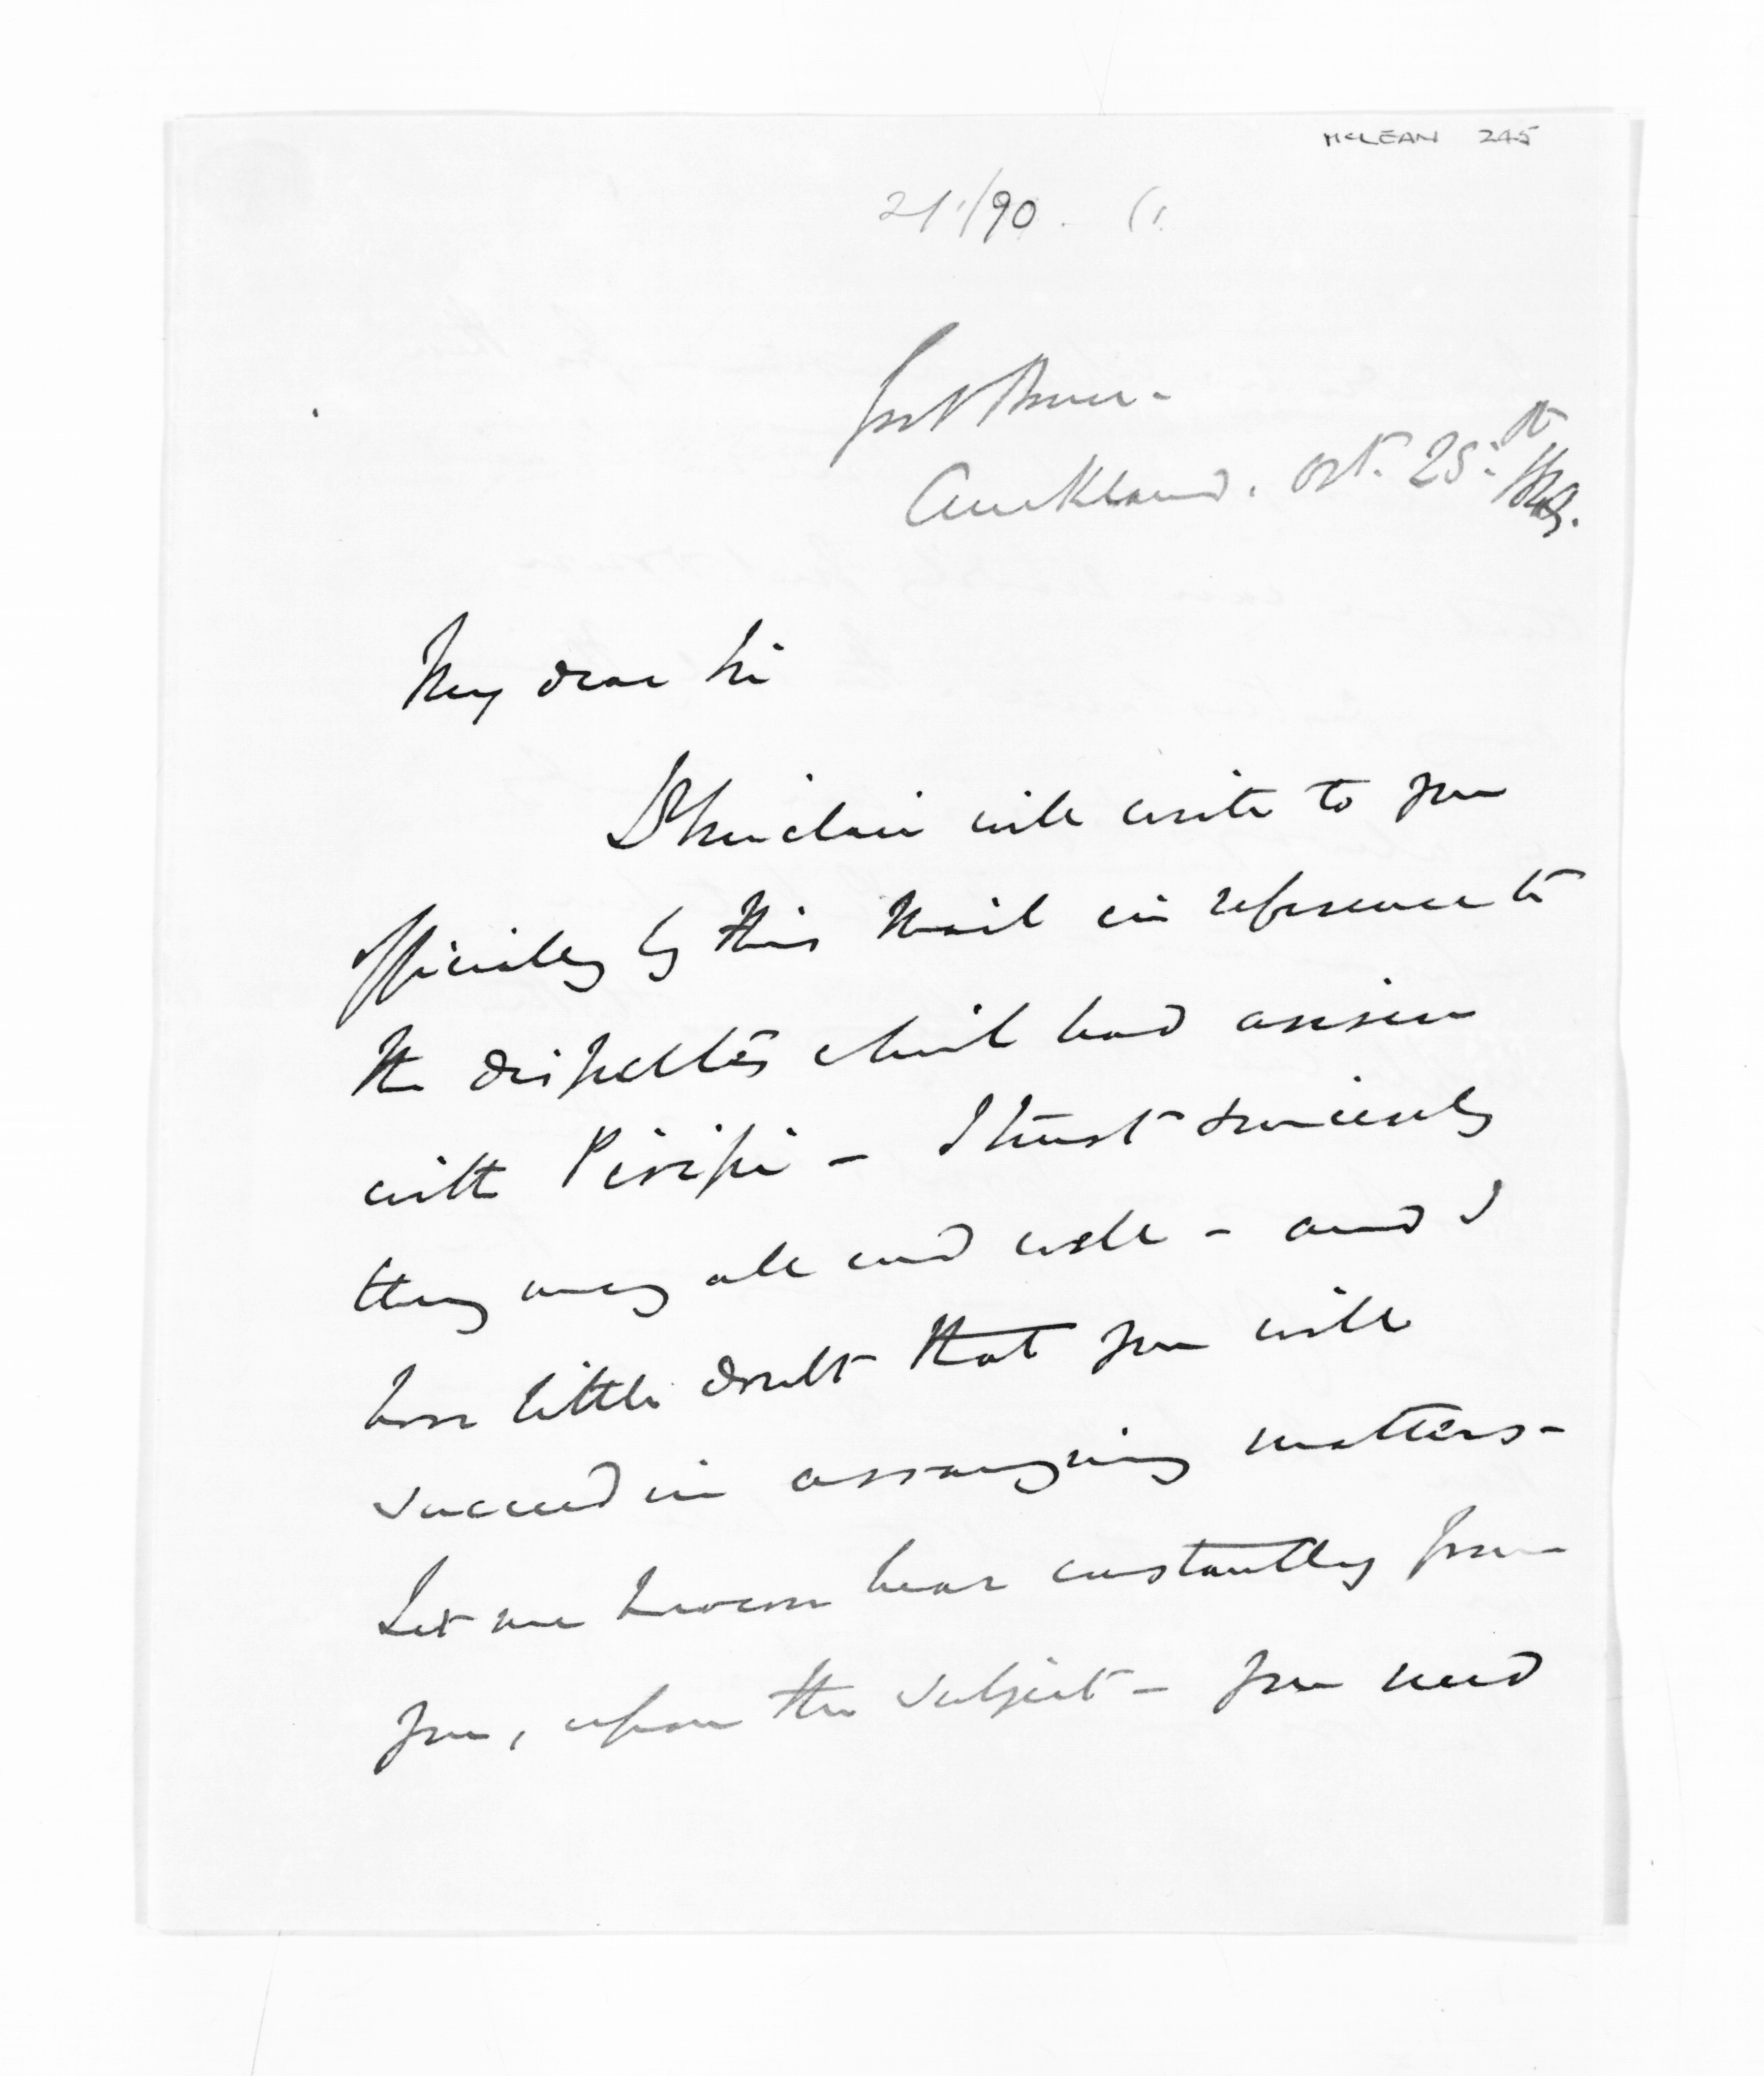 McLEAN 245
21/90
Govt House -
Auckland. Oct. 25th
My dear Sir
Dr Sinclair will write to you
officially by this Mail in reference to
the difficulties which had arisen
with Piripi - I trust sincerely
they may all end well - and I
have little doubt that you will
succeed in arranging matters -
Let me however hear constantly from
you, upon the subject - you need